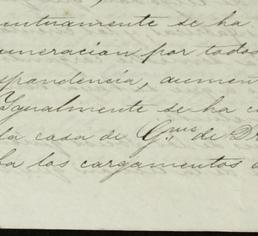 mutuamente se ha
uneracion por todos
spondencia, aumen
Igualmente se ha c
la casa de G.mo de D
fa los cargamentos d